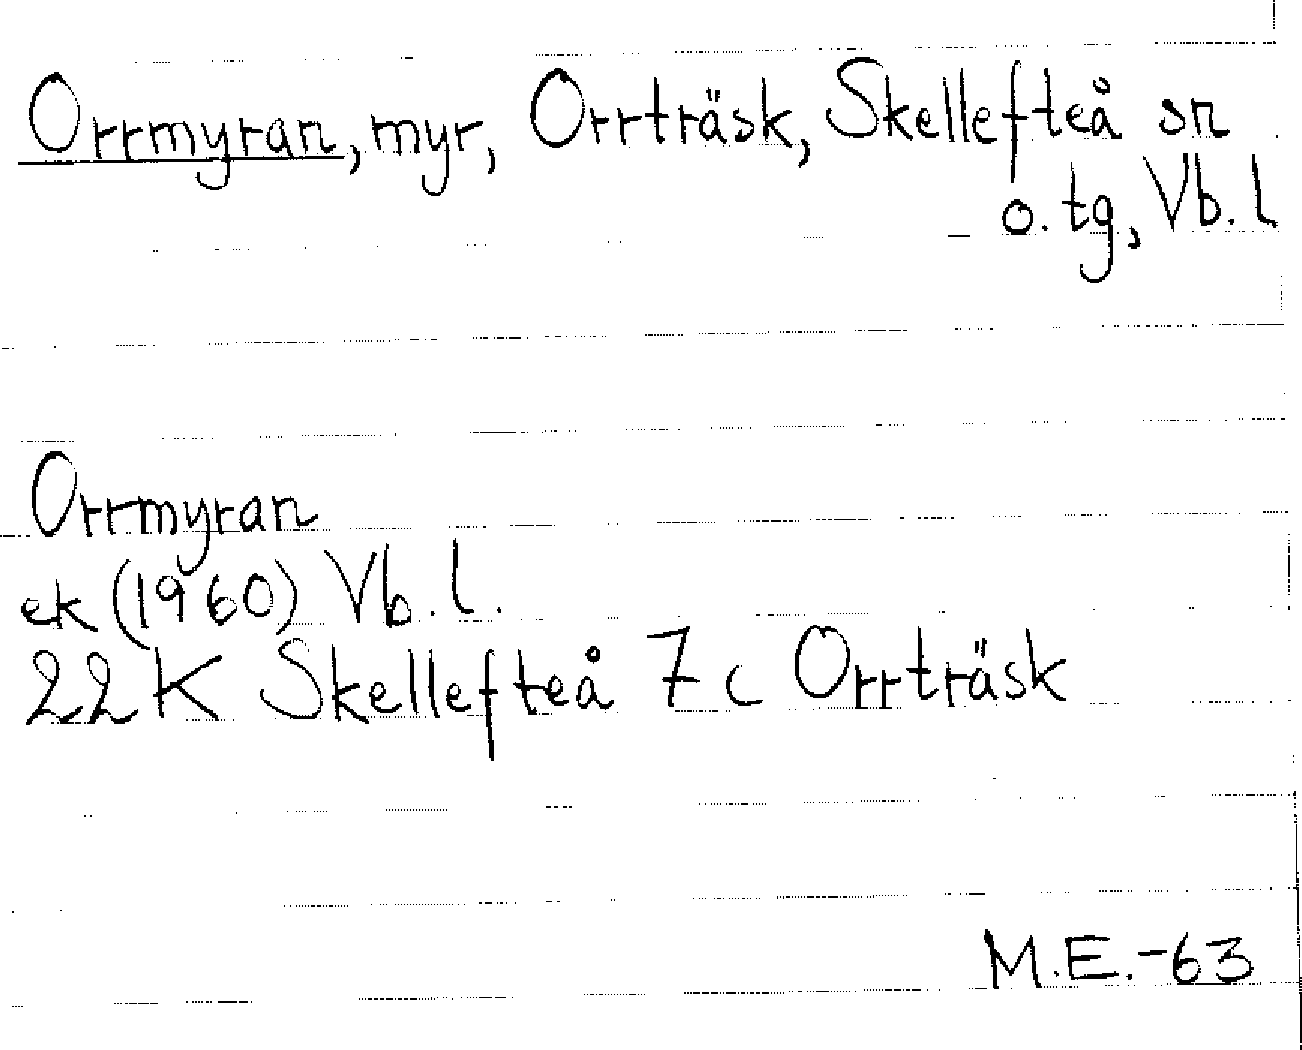 Orrmyran, myr, Orrträsk, Skellefteå sn
o. tg, Vb. l
Orrmyran
ek (1960) Vb. l.
22 K Skellefteå 7 c Orrträsk
M.E.-63